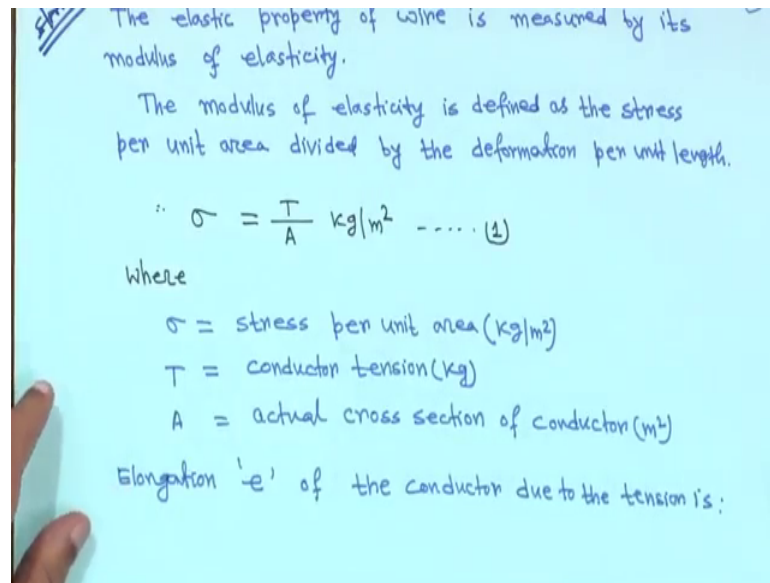 The elastic property of wire is measured by its
modulus of elasticity.
The modulus of elasticity is defined as the stress
per unit area divided by the deformation per unit length.
∴ σ = T/A kg/m² ..... (1)
where
σ = stress per unit area (kg/m²)
T = conductor tension (kg)
A = actual cross section of conductor (m²)
Elongation 'e' of the conductor due to the tension is: